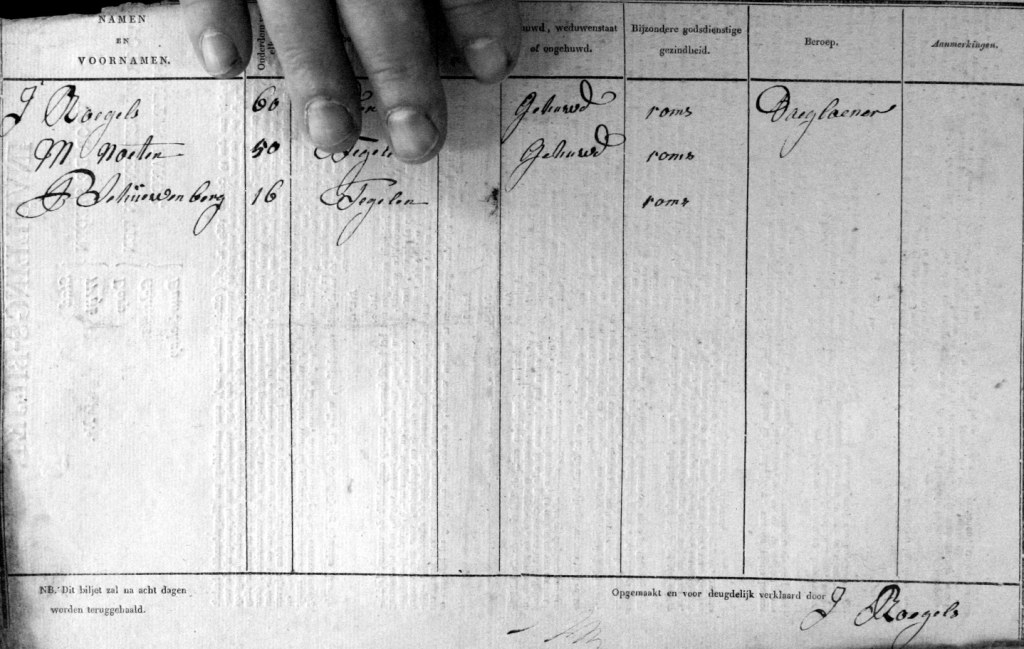 NAMEN
EN
VOORNAMEN.
Ouderdom
uwd, weduwenstaat
of ongehuwd.
Bijzondere godsdienstige
gezindheid.
Beroep.
Aanmerkingen.
J Roegels 60 Gehuwd roms Daeglaener
M Noeten 50 Tegele Gehuwd roms
P Schuewenberg 16 Tegelen roms
NB. Dit biljet zal na acht dagen
worden teruggehaald.
Opgemaakt en voor deugdelijk verklaard door J Roegels